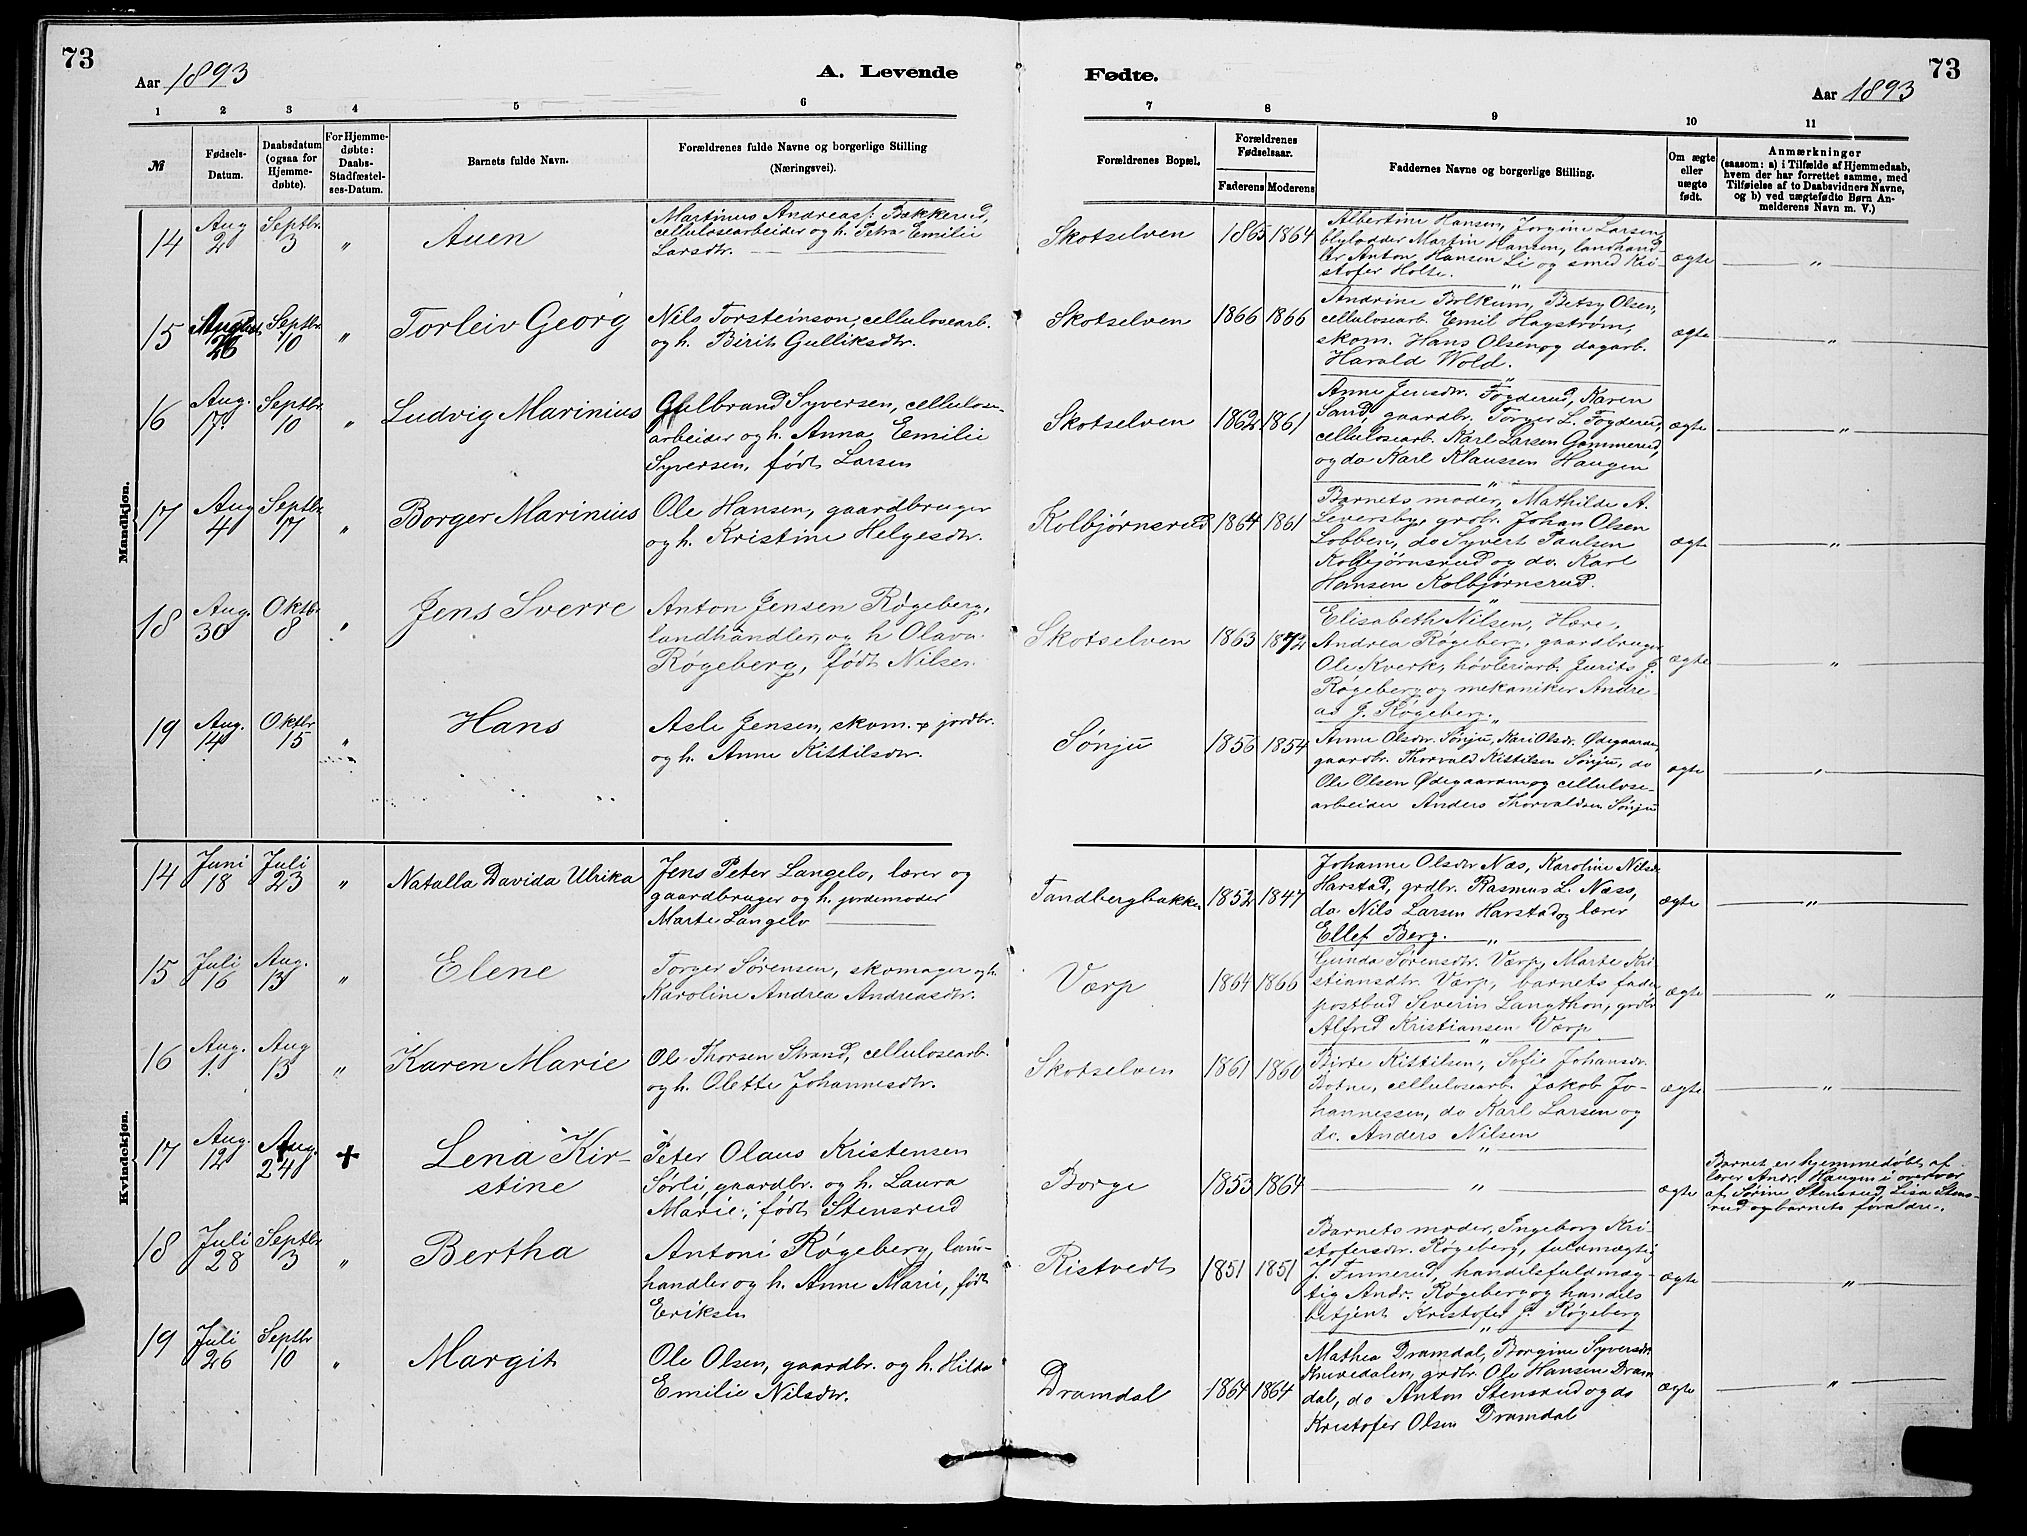 73
Aar 1893
A. Levende
Fødte.
73
Aar 1893
1 2 3 4 5 6 7 8 9 10 11
№
Fødsels-
Datum.
Daabsdatum
(ogsaa for
Hjemme-
døbte).
For Hjemme-
døbte:
Daabs-
Stadfæstel-
ses-Datum.
Barnets fulde Navn.
Forældrenes fulde Navne og borgerlige Stilling
(Næringsvei).
Forældrenes Bopæl.
Forældrenes
Fødselsaar.
Faderens Moderens
Faddernes Navne og borgerlige Stilling.
Om ægte
eller
uægte
født.
Anmærkninger
(saasom: a) i Tilfælde af Hjemmedaab,
hvem der har forrettet samme, med
Tilføielse af to Daabsvidners Navne,
og b) ved uægtefødte Børn An-
melderens Navn m. V.)
Mandkjøn.
14
Aug
2
Septbr.
3
"
Auen
Martinus Andreass: Bakkerud,
cellulosearbeider og h. Petra Emilie
Larsdtr.
Skotselven
1865 1864
Albertine Hansen, Jorgine Larsen,
blylodder Martin Hansen, landhand-
ler Anton Hansen Li og smed Kri-
stofer Holte.
ægte
"
15
August
26
Septbr.
10
"
Torleiv Georg
Nils Torsteinson, cellulosearb.
og h. Birit Gulliksdtr.
Skotselven
1866 1866
Andrine Bolkum, Betsy Olsen,
cellulosearb. Emil Hagstrøm,
skom. Hans Olsen og dagarb.
Harald Wold.
ægte
"
16
Aug.
17.
Septbr
10
"
Ludvig Marinius
Gulbrand Syversen, cellulose-
arbeider og h. Anna Emilie
Syversen, født Larsen
Skotselven
1862 1861
Anne Jensdtr. Fogderud, Karen
Sand, gaardbr. Torger L. Fogderud,
cellulosearb. Karl Larsen Gommerud,
og do Karl Klaussen Haugen
ægte
"
17
Aug
4
Septbr
17
"
Borger Marinius
Ole Hansen, gaardbruger
og h. Kristine Helgesdtr.
Kolbjørnsrud
1864 1861
Barnets moder, Mathilde A.
Leversby, grdbr. Johan Olsen
Lobben, do Syvert Paulsen
Kolbjørnsrud og do. Karl
Hansen Kolbjørnsrud.
ægte
"
18
Aug.
30
Oktbr
8
"
Jens Sverre
Anton Jensen Røgeberg,
landhandler, og h Olava
Røgeberg, født Nilsen.
Skotselven
1863 1872
Elisabeth Nilsen, Hære,
Andrea Røgeberg, gaardbruger
Ole Kverk, høvleriarb. Jurits J.
Røgeberg og mekaniker Andre-
as J. Røgeberg.
ægte
"
19
Aug.
14
Oktbr
15
"
Hans
Asle Jensen, skom. & jordbr.
og h. Anne Kittilsdtr.
Sønju
1856 1854
Anne Olsdtr. Sønju, Kari Olsdr. Ødegaarden,
gaardbr. Thorvald Kittilsen Sønju, do
Ole Olsen Ødegaarden og cellulose-
arbeider Anders Thorvaldsen Sønju
ægte
"
Kvindekjøn.
14
Juni
18
Juli
23
"
Natalla Davida Ulrika
Jens Peter Langelo, lærer og
gaardbruger og h. jordemoder
Marte Langelo
Tandbergbakken
1852 1847
Johanne Olsdtr Næs, Karoline Nilsdr
Harstad, grdbr. Rasmus L. Næss,
do. Nils Larsen Harstad og lærer
Ellef Berg.
ægte
"
15
Juli
16
Aug.
13
"
Elene
Torger Sørensen, skomager og h.
Karoline Andrea Andreasdtr.
Værp
1864 1866
Gunda Sørensdtr. Værp, Marte Kri-
stiansdtr. Værp, barnets fader
postbud Severin Langthon, grdbr
Alfred Kristiansen Værp
ægte
"
16
Aug.
1.
Aug
13
"
Karen Marie
Ole Thorsen Strand, cellulosearb.
og h. Olette Johannesdtr.
Skotselven
1861 1860
Birte Kittilsen, Sofie Johansdr.
Botne, cellulosearb. Jakob Jo-
hannessen, do Karl Larsen og
do. Anders Nilsen
ægte
"
17
Aug.
12
Aug.
24
+
Lena Kir-
stine
Peter Olaus Kristensen
Sørli, gaardbr. og h. Laura
Marie, født Stensrud
Borge
1853 1864
"
ægte
Barnet er hjemmedøbt af
lærer Andr. Haugen i overvær
af Sørine Stensrud, Lisa Stens-
rud og barnets forældre.
18
Juli
28
Septbr
3
"
Bertha
Antoni Røgeberg, lan-
handler og h. Anne Marie, født
Eriksen
Ristvedt
1851 1851
Barnets moder, Ingeborg Kri-
stofersdtr. Røgeberg, fuldmægtig
J. Finnerud, handelsfuldmæg-
tig Andr. Røgeberg og handels
betjent Kristofer J. Røgeberg
ægte
"
19
Juli
26
Septbr
10
"
Margit
Ole Olsen, gaardbr. og h. Hilda
Emilie Nilsdtr.
Dramdal
1864 1864
Mathea Dramdal, Borgine Syversdtr
Knivedalen, grdbr. Ole Hansen Dram
dal, do Anton Stensrud og do
Kristofer Olsen Dramdal
ægte
"